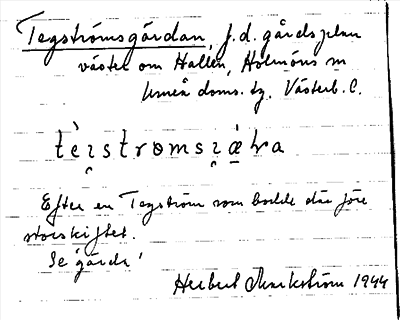 Tegströmsgärdan, f.d. gårdsplan
väster om Hallen, Holmöns sn
Umeå doms. tg. Västerb. L.
tèɿstrømsɿæ̀ɬa
Efter en Tegström som bodde där före
storskiftet.
Se 'gärda'
Herbert Markström 1944